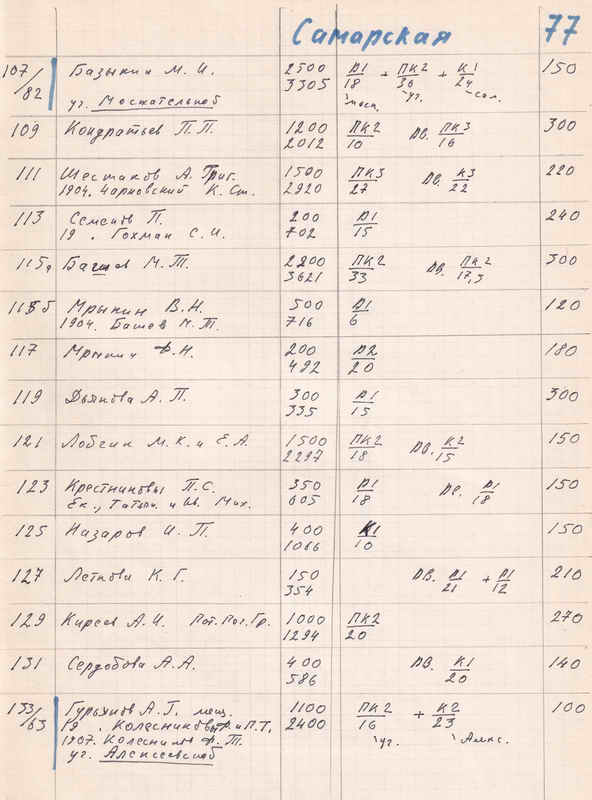 Самарская 77
107/82 Базыкин М. И. 2500 Д1/18 + ПК2/36 + К1/24 150
3305 моск. уг. сам.
уг. Москательной
109 Кондратьев П. П. 1200 ПК2/10 Дв. ПК3/16 300
2012
111 Шестаков А. Григ. 1500 ПК3/27 Дв. К3/22 220
1904. Чарновский К. Ст. 2920
113 Семенов П. 200 Д1/15 240
19 . Гохман С. И. 702
115а Башев М. Т. 2200 ПК2/33 Дв. ПК2/17,3 300
3621
115б Мрыкин В. Н. 500 Д1/6 120
1904. Башев М. Т. 716
117 Мрыкин Ф. Н. 200 Д2/20 180
492
119 Дьянова А. П. 300 Д1/15 300
335
121 Лобгин М. К. и Е. А. 1500 ПК2/18 Дв. К2/15 150
2297
123 Крестниковы П. С. 350 Д1/18 Дв. Д1/18 150
Ек., Татьян. и Ив. Мих. 605
125 Назаров И. П. 400 К1/10 150
1066
127 Леткова К. Г. 150 Дв. Д1/21 + Д1/12 210
354
129 Киреев А. И. Пот. Поч. Гр. 1000 ПК2/20 270
1294
131 Сердобова А. А. 400 Дв. К1/20 140
586
133/63 Гурьянов А. Г. мещ. 1100 ПК2/16 + К2/23 100
19 . Колесниковы Ф. и П. Т. 2400 уг. Алекс.
1907. Колесников Ф. Т.
уг. Алексеевской